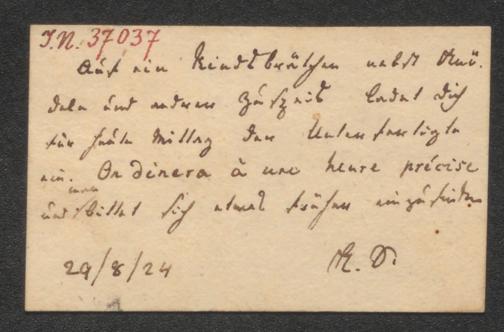 I.N. 37,037
Auf ein Rindsbrätchen nebst Knö-
deln und anderer Zuspeis ladet Dich
für heute Mittag der Unterfertigte
ein. On dînera à une heure précise
und man bittet sich etwas früher einzufinden
29/8/24 R. D.